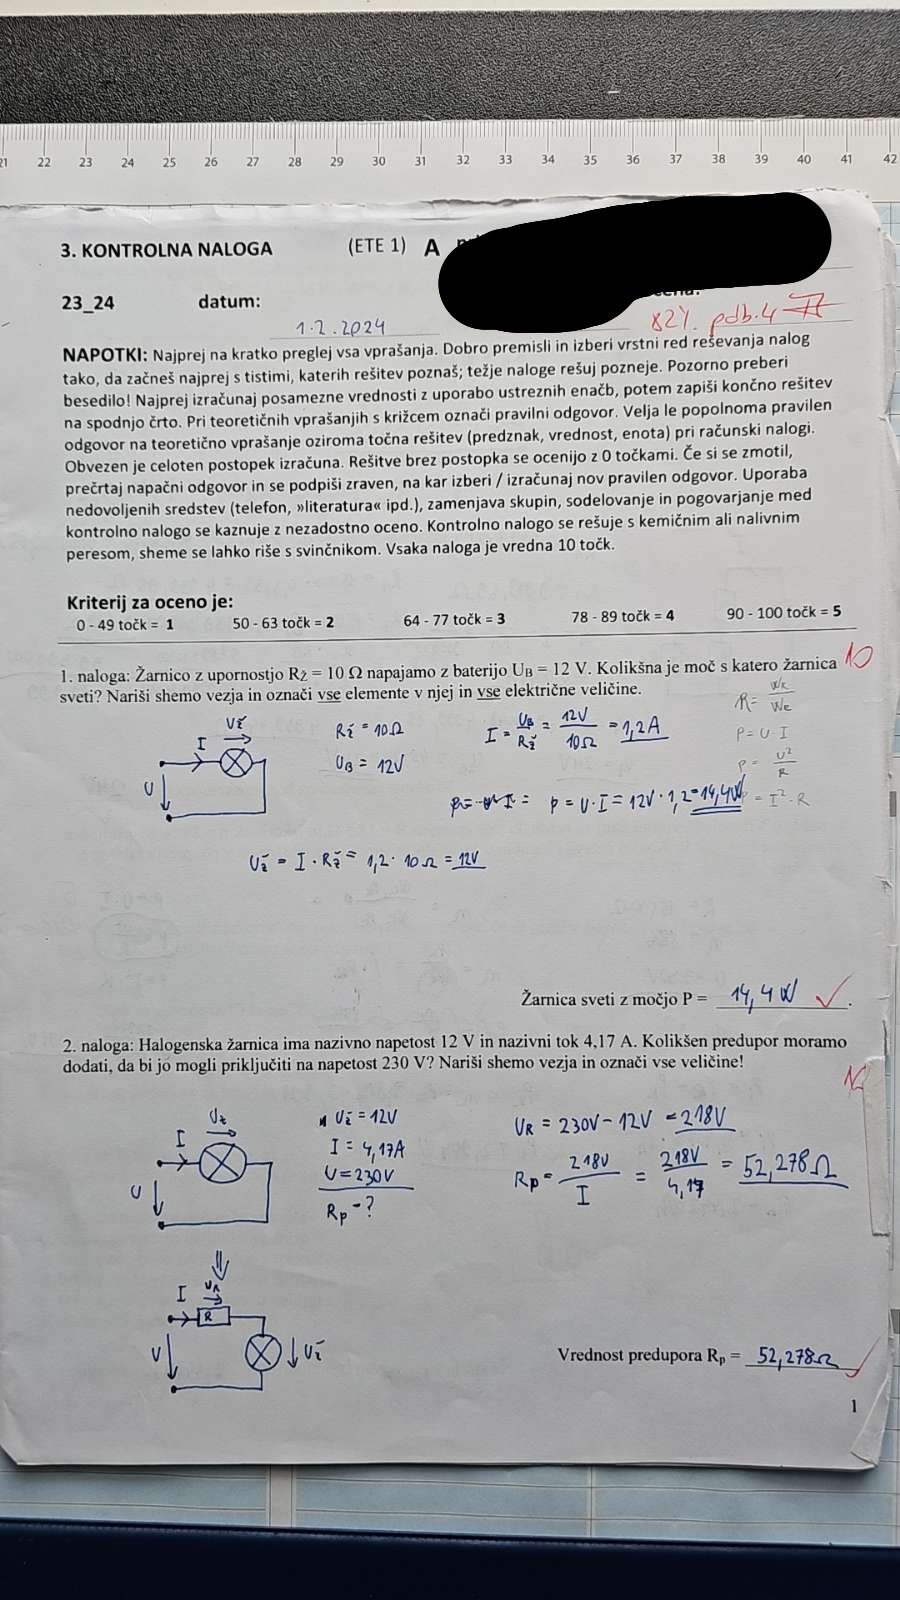 21 22 23 24 25 26 27 28 29 30 31 32 33 34 35 36 37 38 39 40 41 42
3. KONTROLNA NALOGA (ETE 1) A
23_24 datum: ocena:
1.2.2024 82% pdb.4
NAPOTKI: Najprej na kratko preglej vsa vprašanja. Dobro premisli in izberi vrstni red reševanja nalog
tako, da začneš najprej s tistimi, katerih rešitev poznaš; težje naloge rešuj pozneje. Pozorno preberi
besedilo! Najprej izračunaj posamezne vrednosti z uporabo ustreznih enačb, potem zapiši končno rešitev
na spodnjo črto. Pri teoretičnih vprašanjih s križcem označi pravilni odgovor. Velja le popolnoma pravilen
odgovor na teoretično vprašanje oziroma točna rešitev (predznak, vrednost, enota) pri računski nalogi.
Obvezen je celoten postopek izračuna. Rešitve brez postopka se ocenijo z 0 točkami. Če si se zmotil,
prečrtaj napačni odgovor in se podpiši zraven, na kar izberi / izračunaj nov pravilen odgovor. Uporaba
nedovoljenih sredstev (telefon, »literatura« ipd.), zamenjava skupin, sodelovanje in pogovarjanje med
kontrolno nalogo se kaznuje z nezadostno oceno. Kontrolno nalogo se rešuje s kemičnim ali nalivnim
peresom, sheme se lahko riše s svinčnikom. Vsaka naloga je vredna 10 točk.
Kriterij za oceno je:
0 - 49 točk = 1 50 - 63 točk = 2 64 - 77 točk = 3 78 - 89 točk = 4 90 - 100 točk = 5
1. naloga: Žarnico z upornostjo RŽ = 10 Ω napajamo z baterijo UB = 12 V. Kolikšna je moč s katero žarnica 10
sveti? Nariši shemo vezja in označi vse elemente v njej in vse električne veličine.
R = WK/We
I UŽ RŽ = 10Ω I = UB/RŽ = 12V/10Ω = 1,2A P = U · I
U UB = 12V P = U²/R
P = U·I = 12V · 1,2 = 14,4W P = I² · R
UŽ = I · RŽ = 1,2 · 10Ω = 12V
Žarnica sveti z močjo P = 14,4W.
2. naloga: Halogenska žarnica ima nazivno napetost 12 V in nazivni tok 4,17 A. Kolikšen predupor moramo
dodati, da bi jo mogli priključiti na napetost 230 V? Nariši shemo vezja in označi vse veličine!
UŽ UŽ = 12V UR = 230V - 12V = 218V
I I = 4,17A
U U = 230V RP = 218V/I = 218V/4,17 = 52,278Ω
RP = ?
I UR
R
U UŽ
Vrednost predupora Rp = 52,278Ω
1